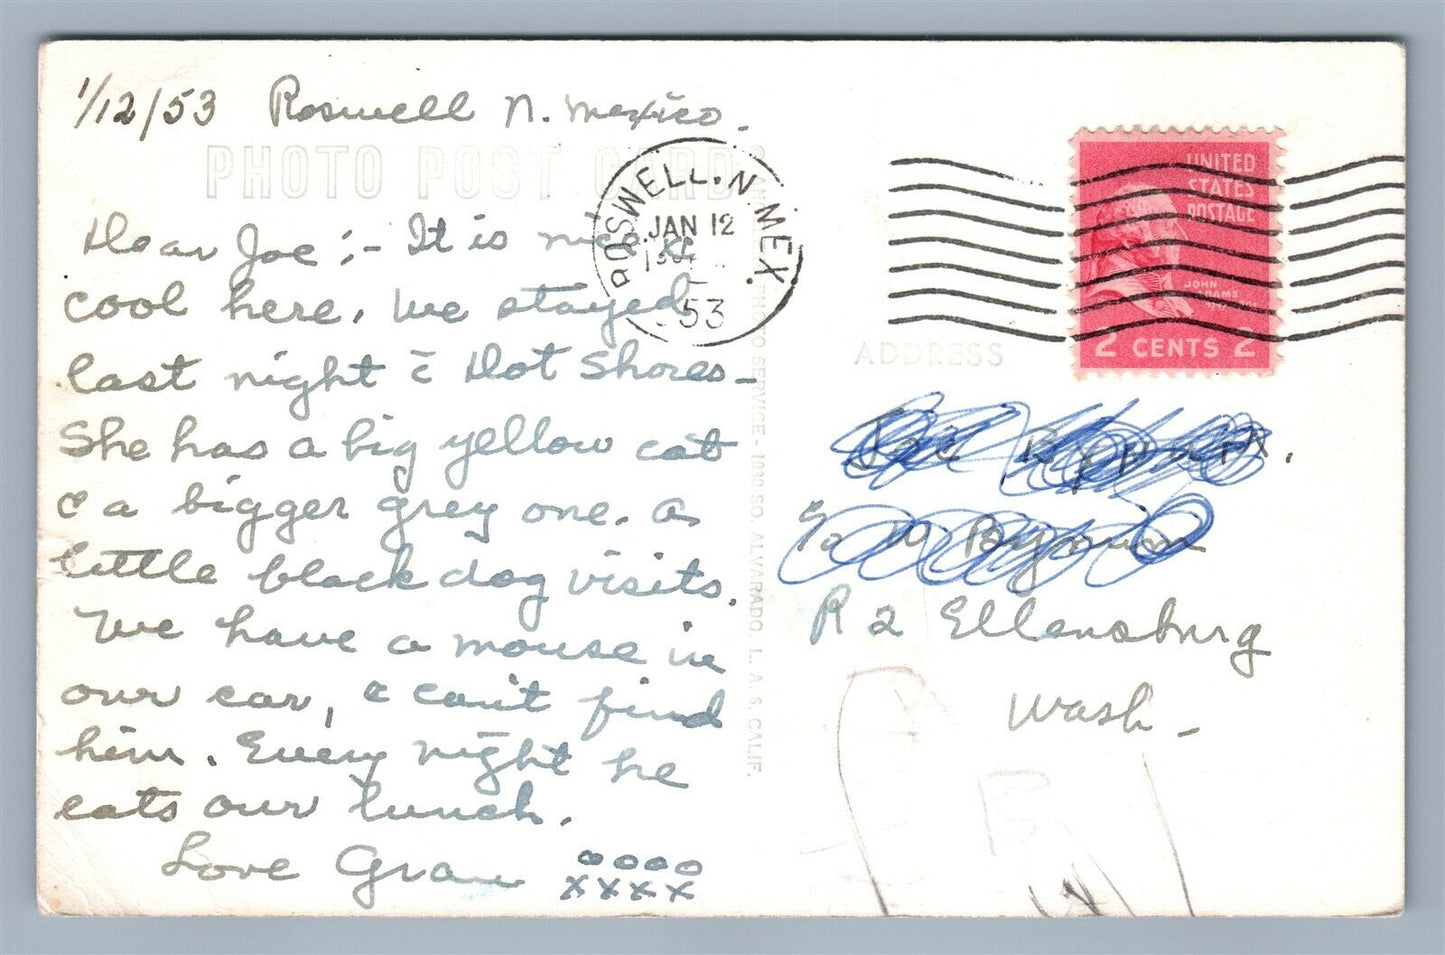 1/12/53 Roswell N. Mexico.
PHOTO POST CARD
Dear Joe :- It is nice &
cool here. We stayed
last night c̄ Dot Shores -
She has a big yellow cat
& a bigger grey one. A
little black dog visits.
We have a mouse in
our car, & can't find
him. Every night he
eats our lunch.
Love Gram oooo
xxxx
ROSWELL. N. MEX.
JAN 12
53
PHOTO SERVICE - 1030 SO. ALVARADO, L. A. 6, CALIF.
UNITED
STATES
POSTAGE
JOHN
ADAMS
2 CENTS 2
ADDRESS
Joe Bynum.
℅ W Bynum
R 2 Ellensburg
Wash -